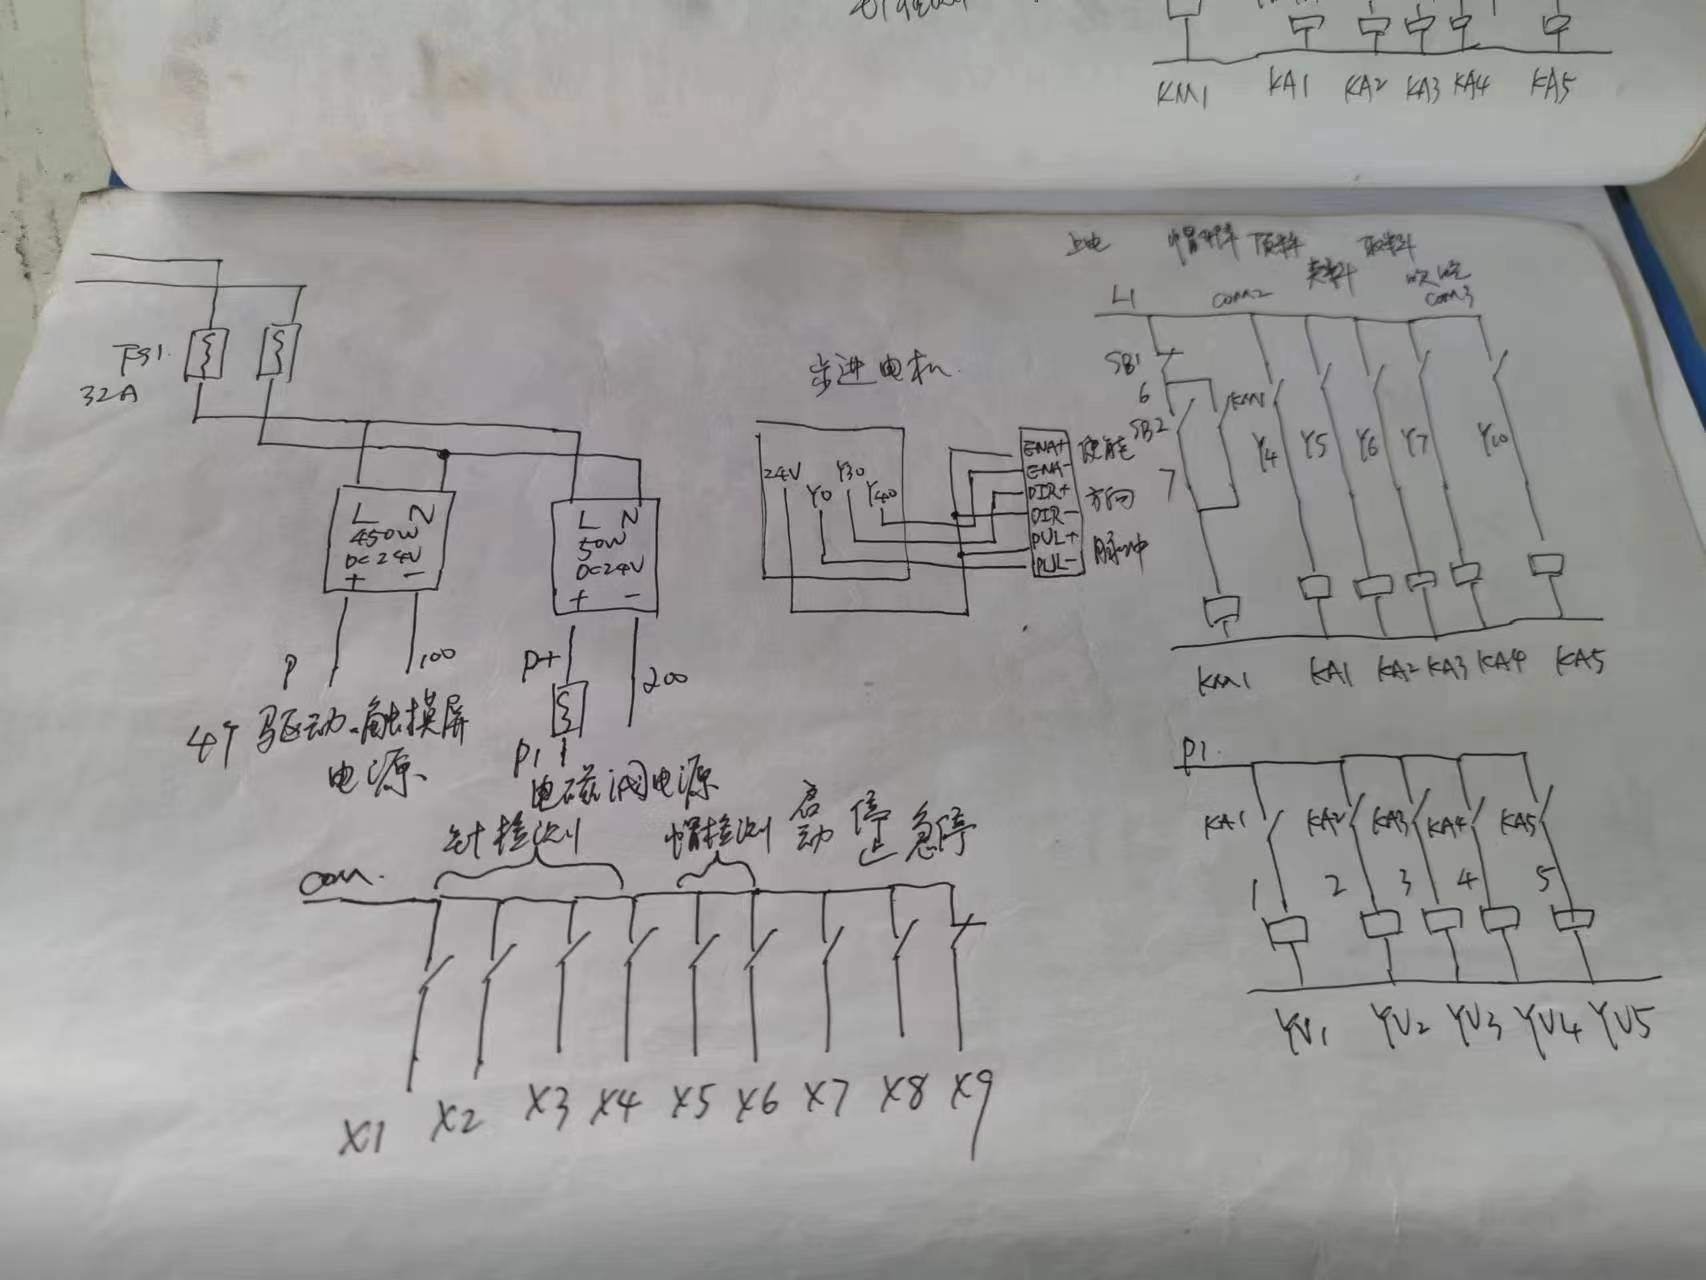 KM1 KA1 KA2 KA3 KA4 KA5
32A
L N
450W
DC24V
+ -
P 100
4个驱动.触摸屏
电源.
L N
50W
DC24V
+ -
P+ 200
P1
电磁阀电源
步进电机.
24V Y0 Y30 Y40
ENA+ 使能
ENA-
DIR+ 方向
DIR-
PUL+ 脉冲
PUL-
上电 帽料 顶料 夹料 取料 吹空
L1 COM2 COM3
SB1
6
SB2 KM1
7
Y4 Y5 Y6 Y7 Y10
KM1 KA1 KA2 KA3 KA4 KA5
P1.
KA1 KA2 KA3 KA4 KA5
1 2 3 4 5
YV1 YV2 YV3 YV4 YV5
针检测 帽检测 启动 停止 急停
com.
X1 X2 X3 X4 X5 X6 X7 X8 X9